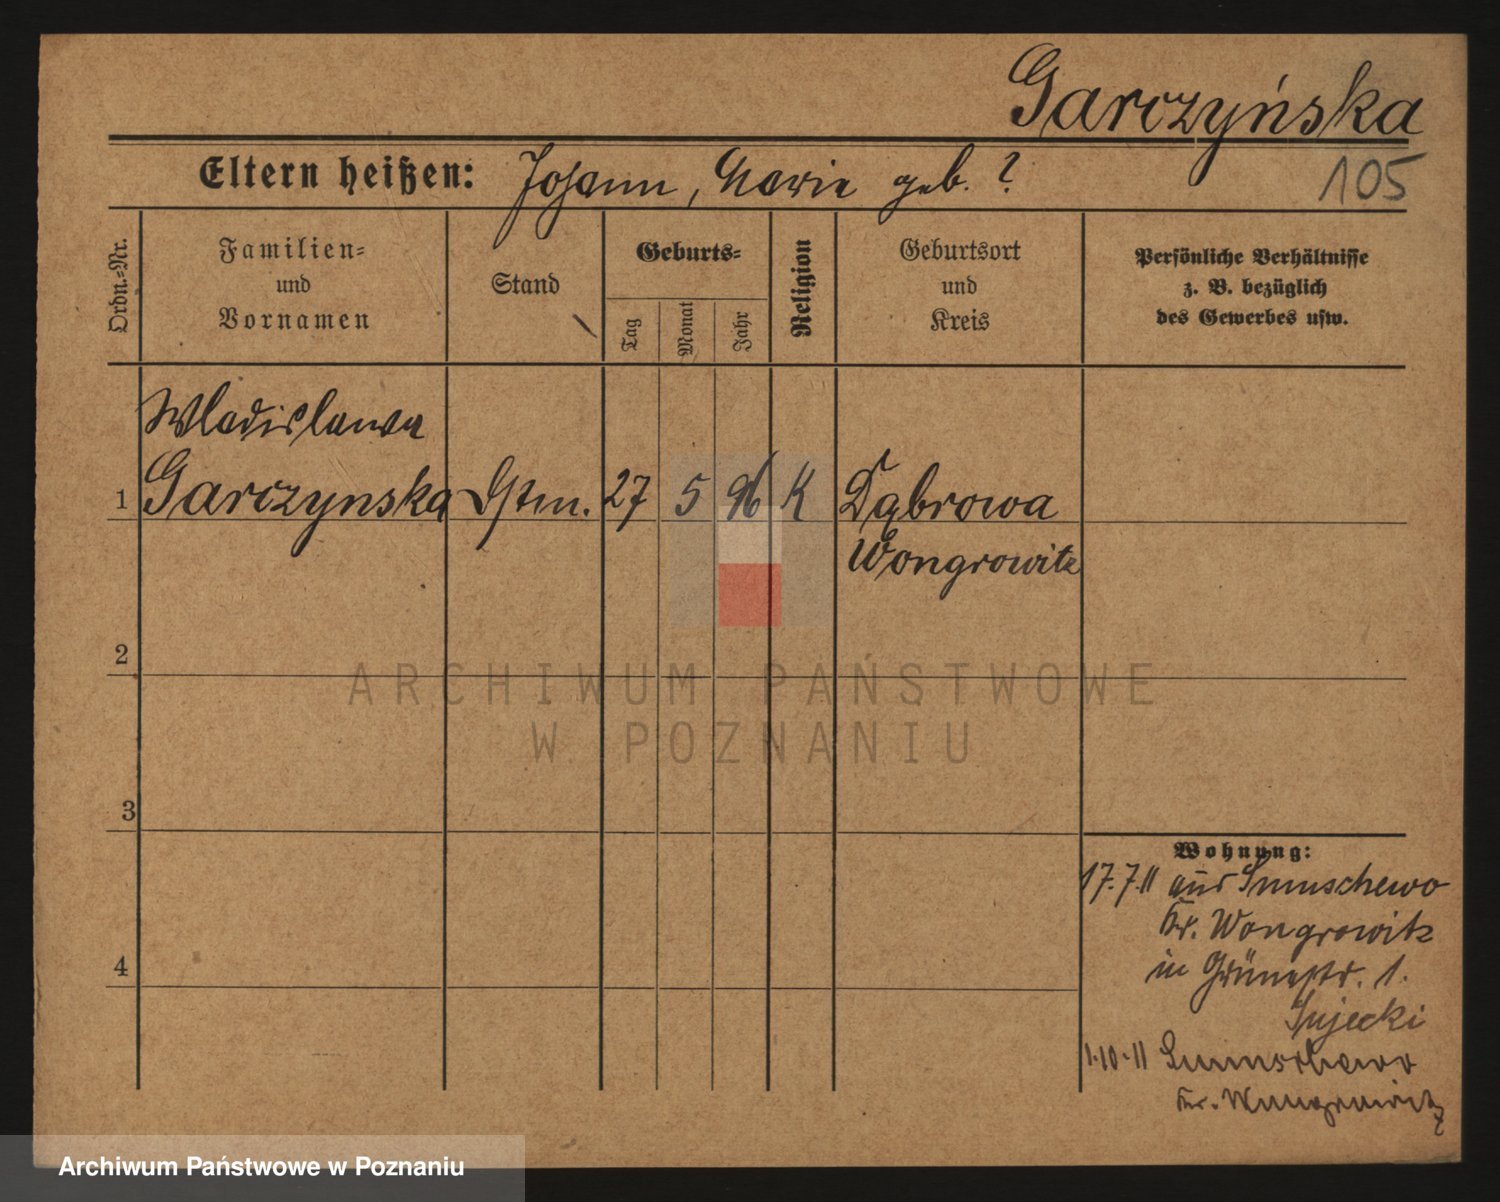 Garczyńska
105
Eltern heißen: Johann, Marie geb. ?
Ordn.-Nr.
Familien-
und
Vornamen
Stand
Geburts-
Tag
Monat
Jahr
Religion
Geburtsort
und
Kreis
Persönliche Verhältnisse
z. B. bezüglich
des Gewerbes usw.
Wladislawa
1 Garczynska Dstm. 27 5 96 K Dąbrowa
Wongrowitz
2
3
4
ARCHIWUM PAŃSTWOWE
W POZNANIU
Wohnung:
17.7.11 aus Smuschewo
Kr. Wongrowitz
in Grünestr. 1.
1.10.11 Smuschewo
Kr. Wongrowitz
Archiwum Państwowe w Poznaniu